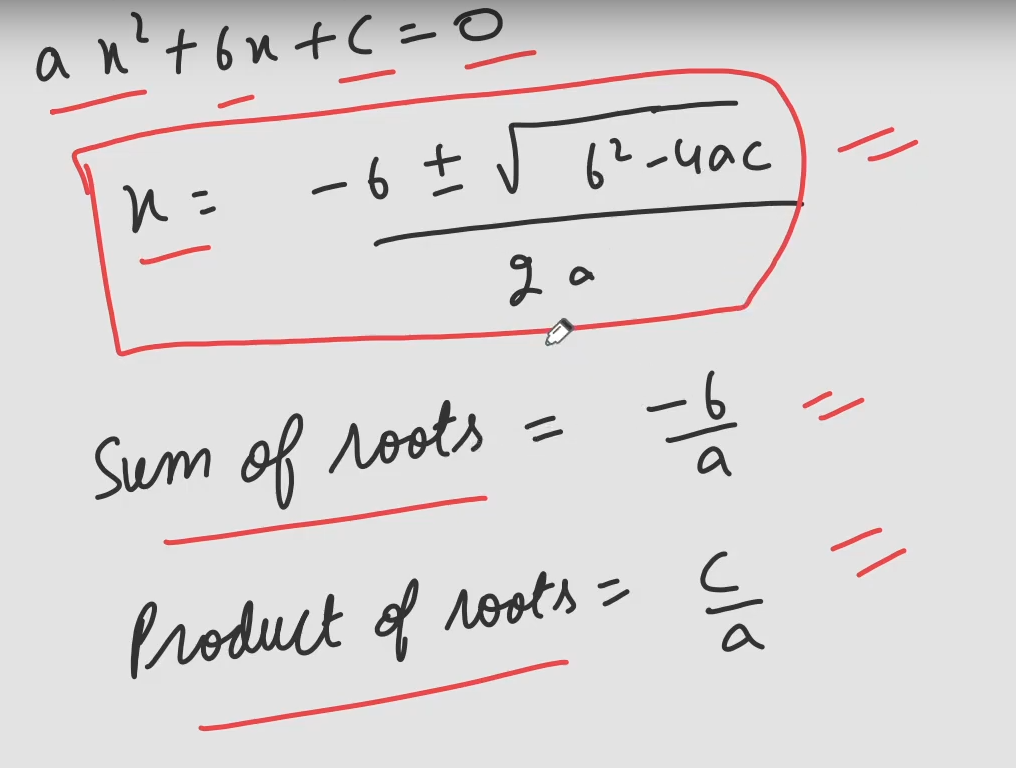 ax² + bx + c = 0
x = -b ± √(b² - 4ac) / 2a
Sum of roots = -b/a
Product of roots = c/a